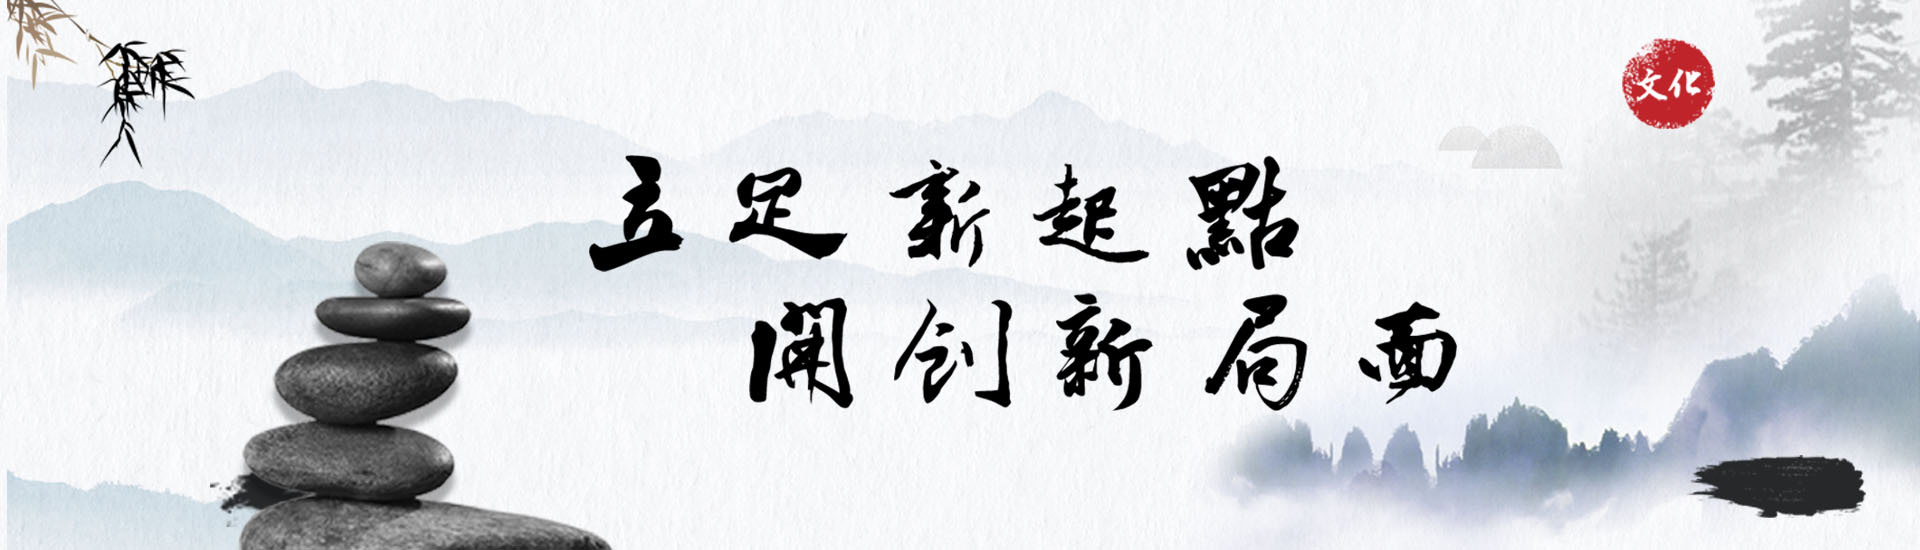 文化
立足新起點
開创新局面